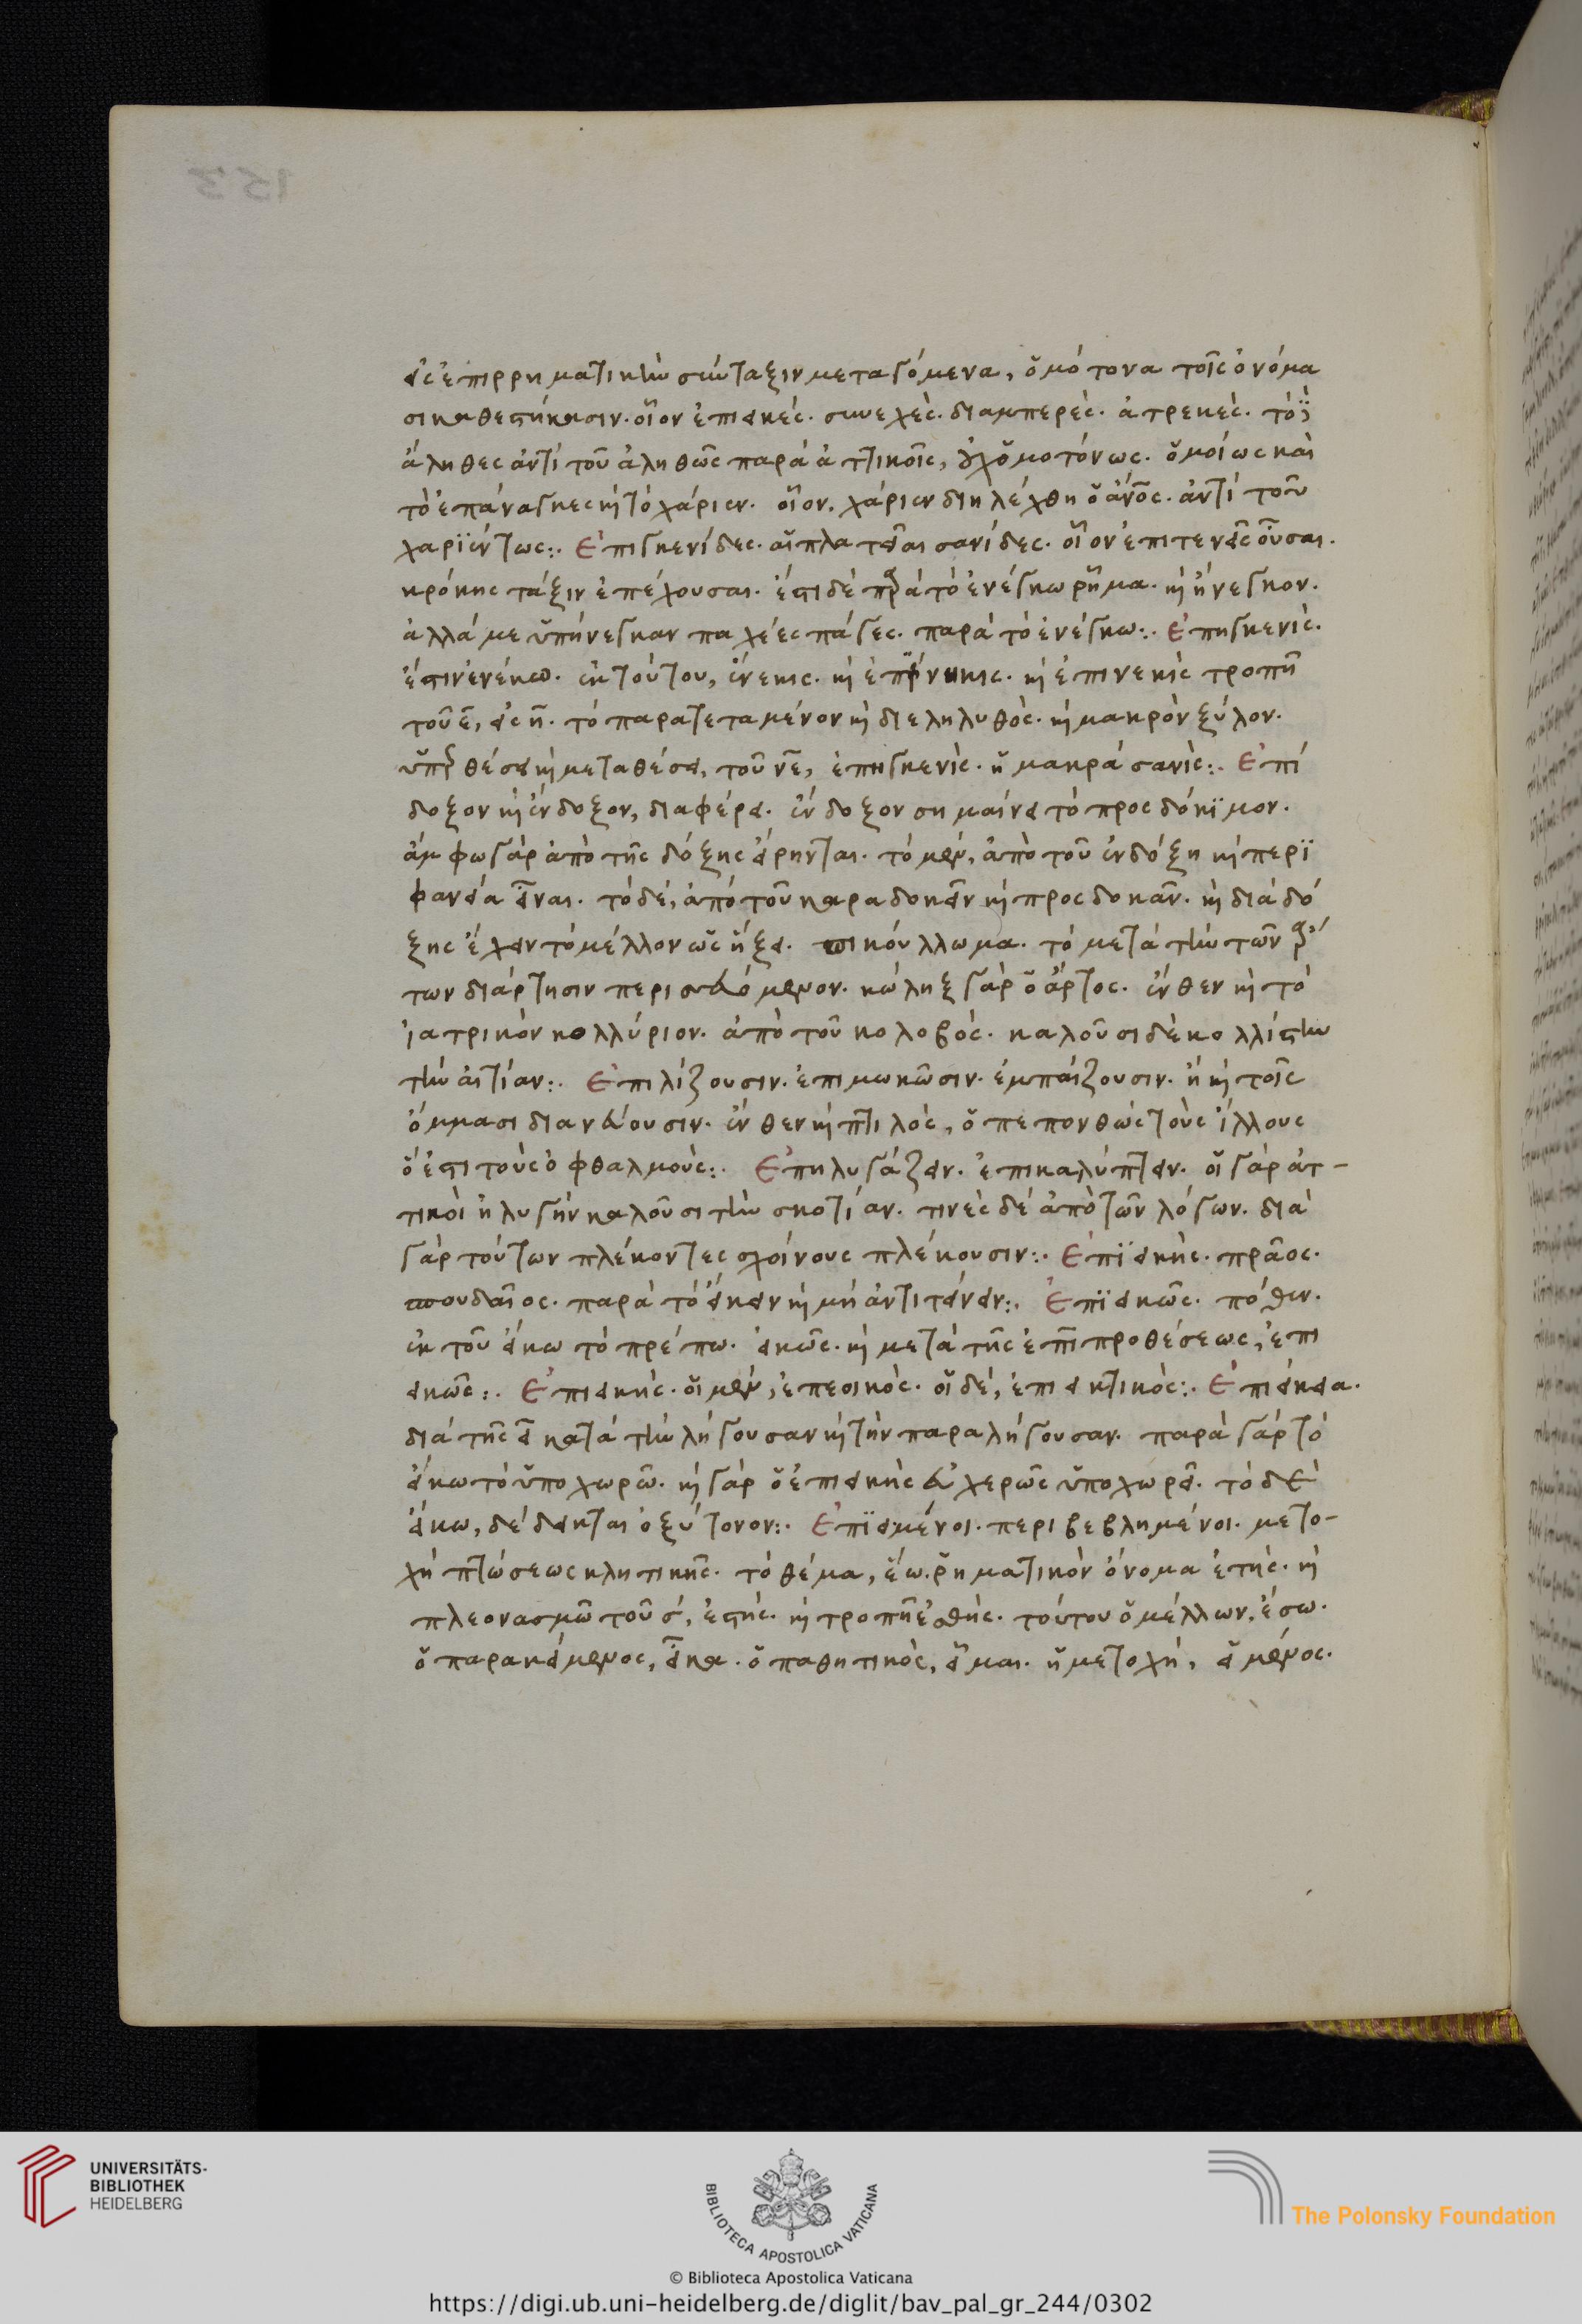 εἰς ἐπιρρηματικὴν σύνταξιν μεταγόμενα, ὁμότονα τοῖς ὀνόμα
σι καθεστήκασιν. οἷον ἐπιεικές. συνεχές. διαμπερές. ἀτρεκές. τὸ
ἄληθες ἀντὶ τοῦ ἀληθῶς παρὰ ἀττικοῖς, οὐχ ὁμοτόνως. ὁμοίως καὶ
τὸ ἐπάναγκες καὶ τὸ χάριεν. οἷον. χάριεν διηλέχθη ὁ ἄνος. ἀντὶ τοῦ
χαρϊέντως:. Ἐπιγκενίδες. αἱ πλατεῖαι σανίδες. οἷον ἐπιτενεῖς οὖσαι.
κρόκης τάξιν ἐπέχουσαι. ἔστι δὲ πρὰ τὸ ἐνέγκω ῥῆμα. καὶ ἤνεγκον.
ἀλλά με ὑπήνεγκαν παχέες πάγες. παρὰ τὸ ἐνέγκω:. Ἐπηγκενίς.
ἔστιν ἐνέκω. ἐκ τούτου, ἔνεκις. καὶ ἐπένηκις. καὶ ἐπινεκὶς τροπῇ
τοῦ ε, εἰς η. τὸ παρατεταμένον καὶ διεληλυθός. καὶ μακρὸν ξύλον.
ὑπερθέσει καὶ μεταθέσει, τοῦ νε, ἐπηγκενίς. ἡ μακρὰ σανίς:. Ἐπί
δοξον καὶ ἔνδοξον, διαφέρει. ἔνδοξον σημαίνει τὸ προσδόκϊμον.
ἄμφω γὰρ ἀπὸ τῆς δόξης εἴρηνται. τὸ μὲν, ἀπὸ τοῦ ἐνδόξη καὶ περϊ
φανεία εἶναι. τὸ δέ, ἀπὸ τοῦ καραδοκεῖν καὶ προσδοκᾶν. καὶ διὰ δό
ξης ἔχειν τὸ μέλλον ὡς ἥξει. πικόλλωμα. τὸ μετὰ τὴν τῶν
των διάρτησιν περισσευόμενον. κώληξ γὰρ ὁ ἄρτος. ἔνθεν καὶ τὸ
ἰατρικὸν κολλύριον. ἀπὸ τοῦ κολοβός. καλοῦσι δὲ κολλίστην
τὴν αἰτίαν:. Ἐπιλίζουσιν. ἐπιμωκῶσιν. ἐμπαίζουσιν. ἢ καὶ τοῖς
ὄμμασι διανεύουσιν. ἔνθεν καὶ πτιλός, ὁ πεπονθὼς τοὺς ἴλλους
ὅ ἐστι τοὺς ὀφθαλμούς:. Ἐπηλυγάζειν. ἐπικαλύπτειν. οἱ γὰρ ἀτ-
τικοὶ ἠλυγὴν καλοῦσι τὴν σκοτίαν. τινὲς δὲ ἀπὸ τῶν λόγων. διὰ
γὰρ τούτων πλέκοντες σχοίνους πλέκουσιν:. Ἐπϊεικής. πρᾶος.
σπουδαῖος. παρὰ τὸ εἴκειν καὶ μὴ ἀντιτείνειν:. Ἐπϊεικῶς. πόθεν.
ἐκ τοῦ εἴκω τὸ πρέπω. εἰκῶς. καὶ μετὰ τῆς ἐπι προθέσεως, ἐπι
εικῶς:. Ἐπιεικής. οἱ μὲν, ἐπεοικός. οἱ δέ, ἐπιεικτικός:. Ἐπιείκεια.
διὰ τῆς ει κατὰ τὴν λήγουσαν καὶ τὴν παραλήγουσαν. παρὰ γὰρ τὸ
εἴκω τὸ ὑποχωρῶ. καὶ γὰρ ὁ ἐπιεικὴς εὐχερῶς ὑποχωρεῖ. τὸ δὲ
εἴκω, δέδεικται ὀξύτονον:. Ἐπϊειμένοι. περιβεβλημένοι. μετο-
χὴ πτώσεως κλητικῆς. τὸ θέμα, ἕω. ῥηματικὸν ὄνομα ἑτής. καὶ
πλεονασμῶ τοῦ σ, ἑστής. καὶ τροπῇ ἐσθής. τούτου ὁ μέλλων, ἕσω.
ὁ παρακείμενος, εἷκα. ὁ παθητικός, εἷμαι. ἡ μετοχή, εἱμένος.
153
UNIVERSITÄTS-
BIBLIOTHEK
HEIDELBERG
BIBLIOTECA APOSTOLICA VATICANA
The Polonsky Foundation
© Biblioteca Apostolica Vaticana
https://digi.ub.uni-heidelberg.de/diglit/bav_pal_gr_244/0302